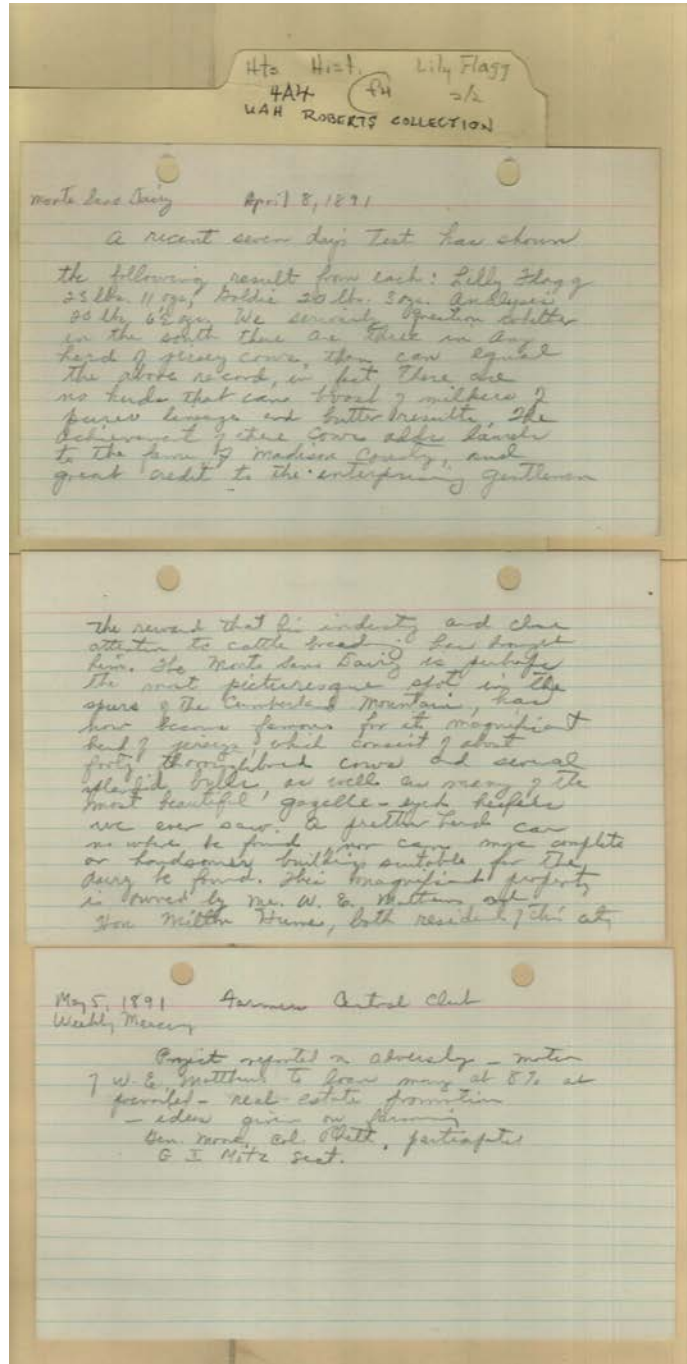 Hts Hist. Lily Flagg
4A4 2/2
UAH ROBERTS COLLECTION
Monte Sano Dairy April 8, 1891
A recent seven days Test has shown
the following result from each: Lilly Flagg
23 lbs. 11 ozs, Goldie 20 lbs. 3 ozs. Analysis
20 lbs We seriously question whether
in the south there are three in any
herd of jersey cows, than can equal
the above record, in fact There are
no herds that can boast of milkers of
purer lineage and butter results. The
achievement of these cows adds laurels
to the fame of Madison County, and
great credit to the enterprising gentlemen
the reward that his industry and close
attention to cattle breeding has brought
him. The Monte Sano Dairy is perhaps
the most picturesque spot in the
spurs of the Cumberland Mountain, has
now become famous for its magnificent
herd of jerseys, which consist of about
forty thoroughbred cows and several
splendid bulls, as well as many of the
most beautiful, gazelle-eyed heifers
we ever saw. A prettier herd can
no where be found, nor can more complete
or handsomer buildings suitable for the
dairy be found. This magnificent property
is owned by Mr. W. E. Matthews and
Hon Milton Humes, both residents of this city
May 5, 1891 Farmers Central Club
Weekly Mercury
Project reported on adversely - motion
of W. E. Matthews to loan money at 8% as
provided - real estate promotion
- ideas given on farming
Gen. Moore, Col. participated
G I Motz Sect.